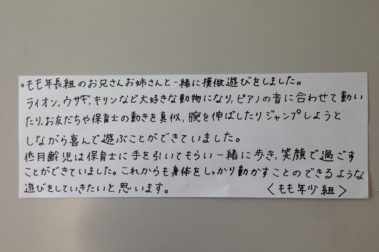 。もも年長組のお兄さんお姉さんと一緒に模倣遊びをしました。
ライオン、ウサギ、キリンなど大好きな動物になり、ピアノの音に合わせて動い
たり、お友だちや保育士の動きを真似、腕を伸ばしたりジャンプしようと
しながら喜んで遊ぶことができていました。
低月齢児は保育士に手を引いてもらい一緒に歩き、笑顔で過ごす
ことができていました。これからも身体をしっかり動かすことのできるような
遊びをしていきたいと思います。 〈もも年少組〉